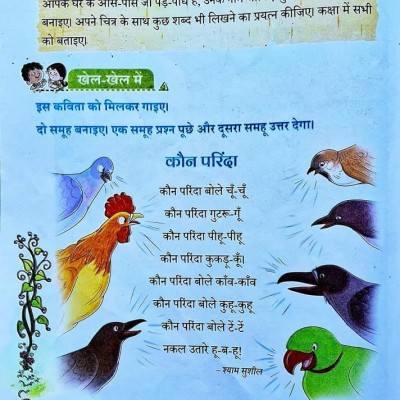 बनाइए। अपने चित्र के साथ कुछ शब्द भी लिखने का प्रयत्न कीजिए। कक्षा में सभी
को बताइए।
खेल-खेल में
इस कविता को मिलकर गाइए।
दो समूह बनाइए। एक समूह प्रश्न पूछे और दूसरा समहू उत्तर देगा।
कौन परिंदा
कौन परिंदा बोले चूँ-चूँ
कौन परिंदा गुटरू-गूँ
कौन परिंदा पीहू-पीहू
कौन परिंदा कुकड़ू-कूँ।
कौन परिंदा बोले काँव-काँव
कौन परिंदा बोले कुहू-कुहू
कौन परिंदा बोले टें-टें
नकल उतारे हू-ब-हू!
– श्याम सुशील